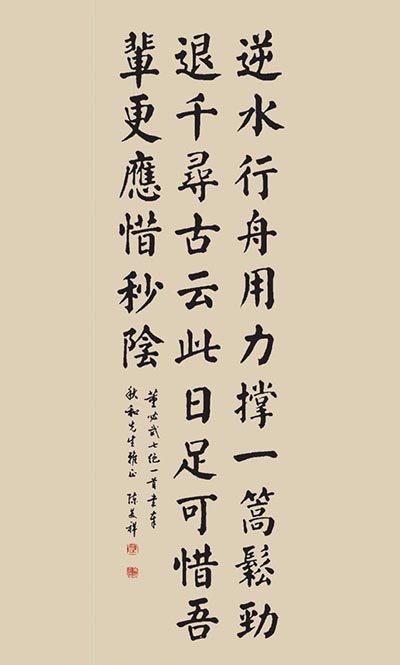 逆水行舟用力撐一篙鬆勁
退千尋古云此日足可惜吾
輩更應惜秒陰
董必武七絶一首書奉
秋和先生雅正 陈美祥